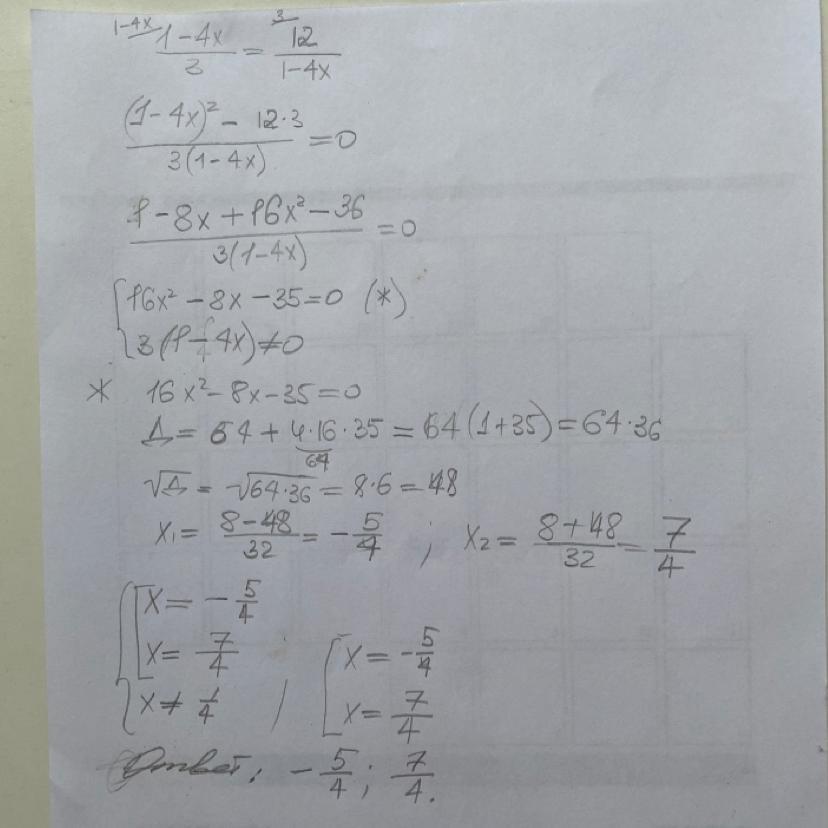 1-4x 1-4x/3 = 3 12/(1-4x)
((1-4x)² - 12·3)/(3(1-4x)) = 0
(1-8x+16x²-36)/(3(1-4x)) = 0
{16x²-8x-35=0 (*)
{3(1-4x)≠0
* 16x²-8x-35=0
Δ = 64+4·16·35 = 64(1+35) = 64·36
64
√Δ = √(64·36) = 8·6 = 48
x₁ = (8-48)/32 = -5/4 ; x₂ = (8+48)/32 = 7/4
{[x = -5/4
{[x = 7/4 ; [x = -5/4
{x ≠ 1/4 [x = 7/4
Ответ: -5/4; 7/4.